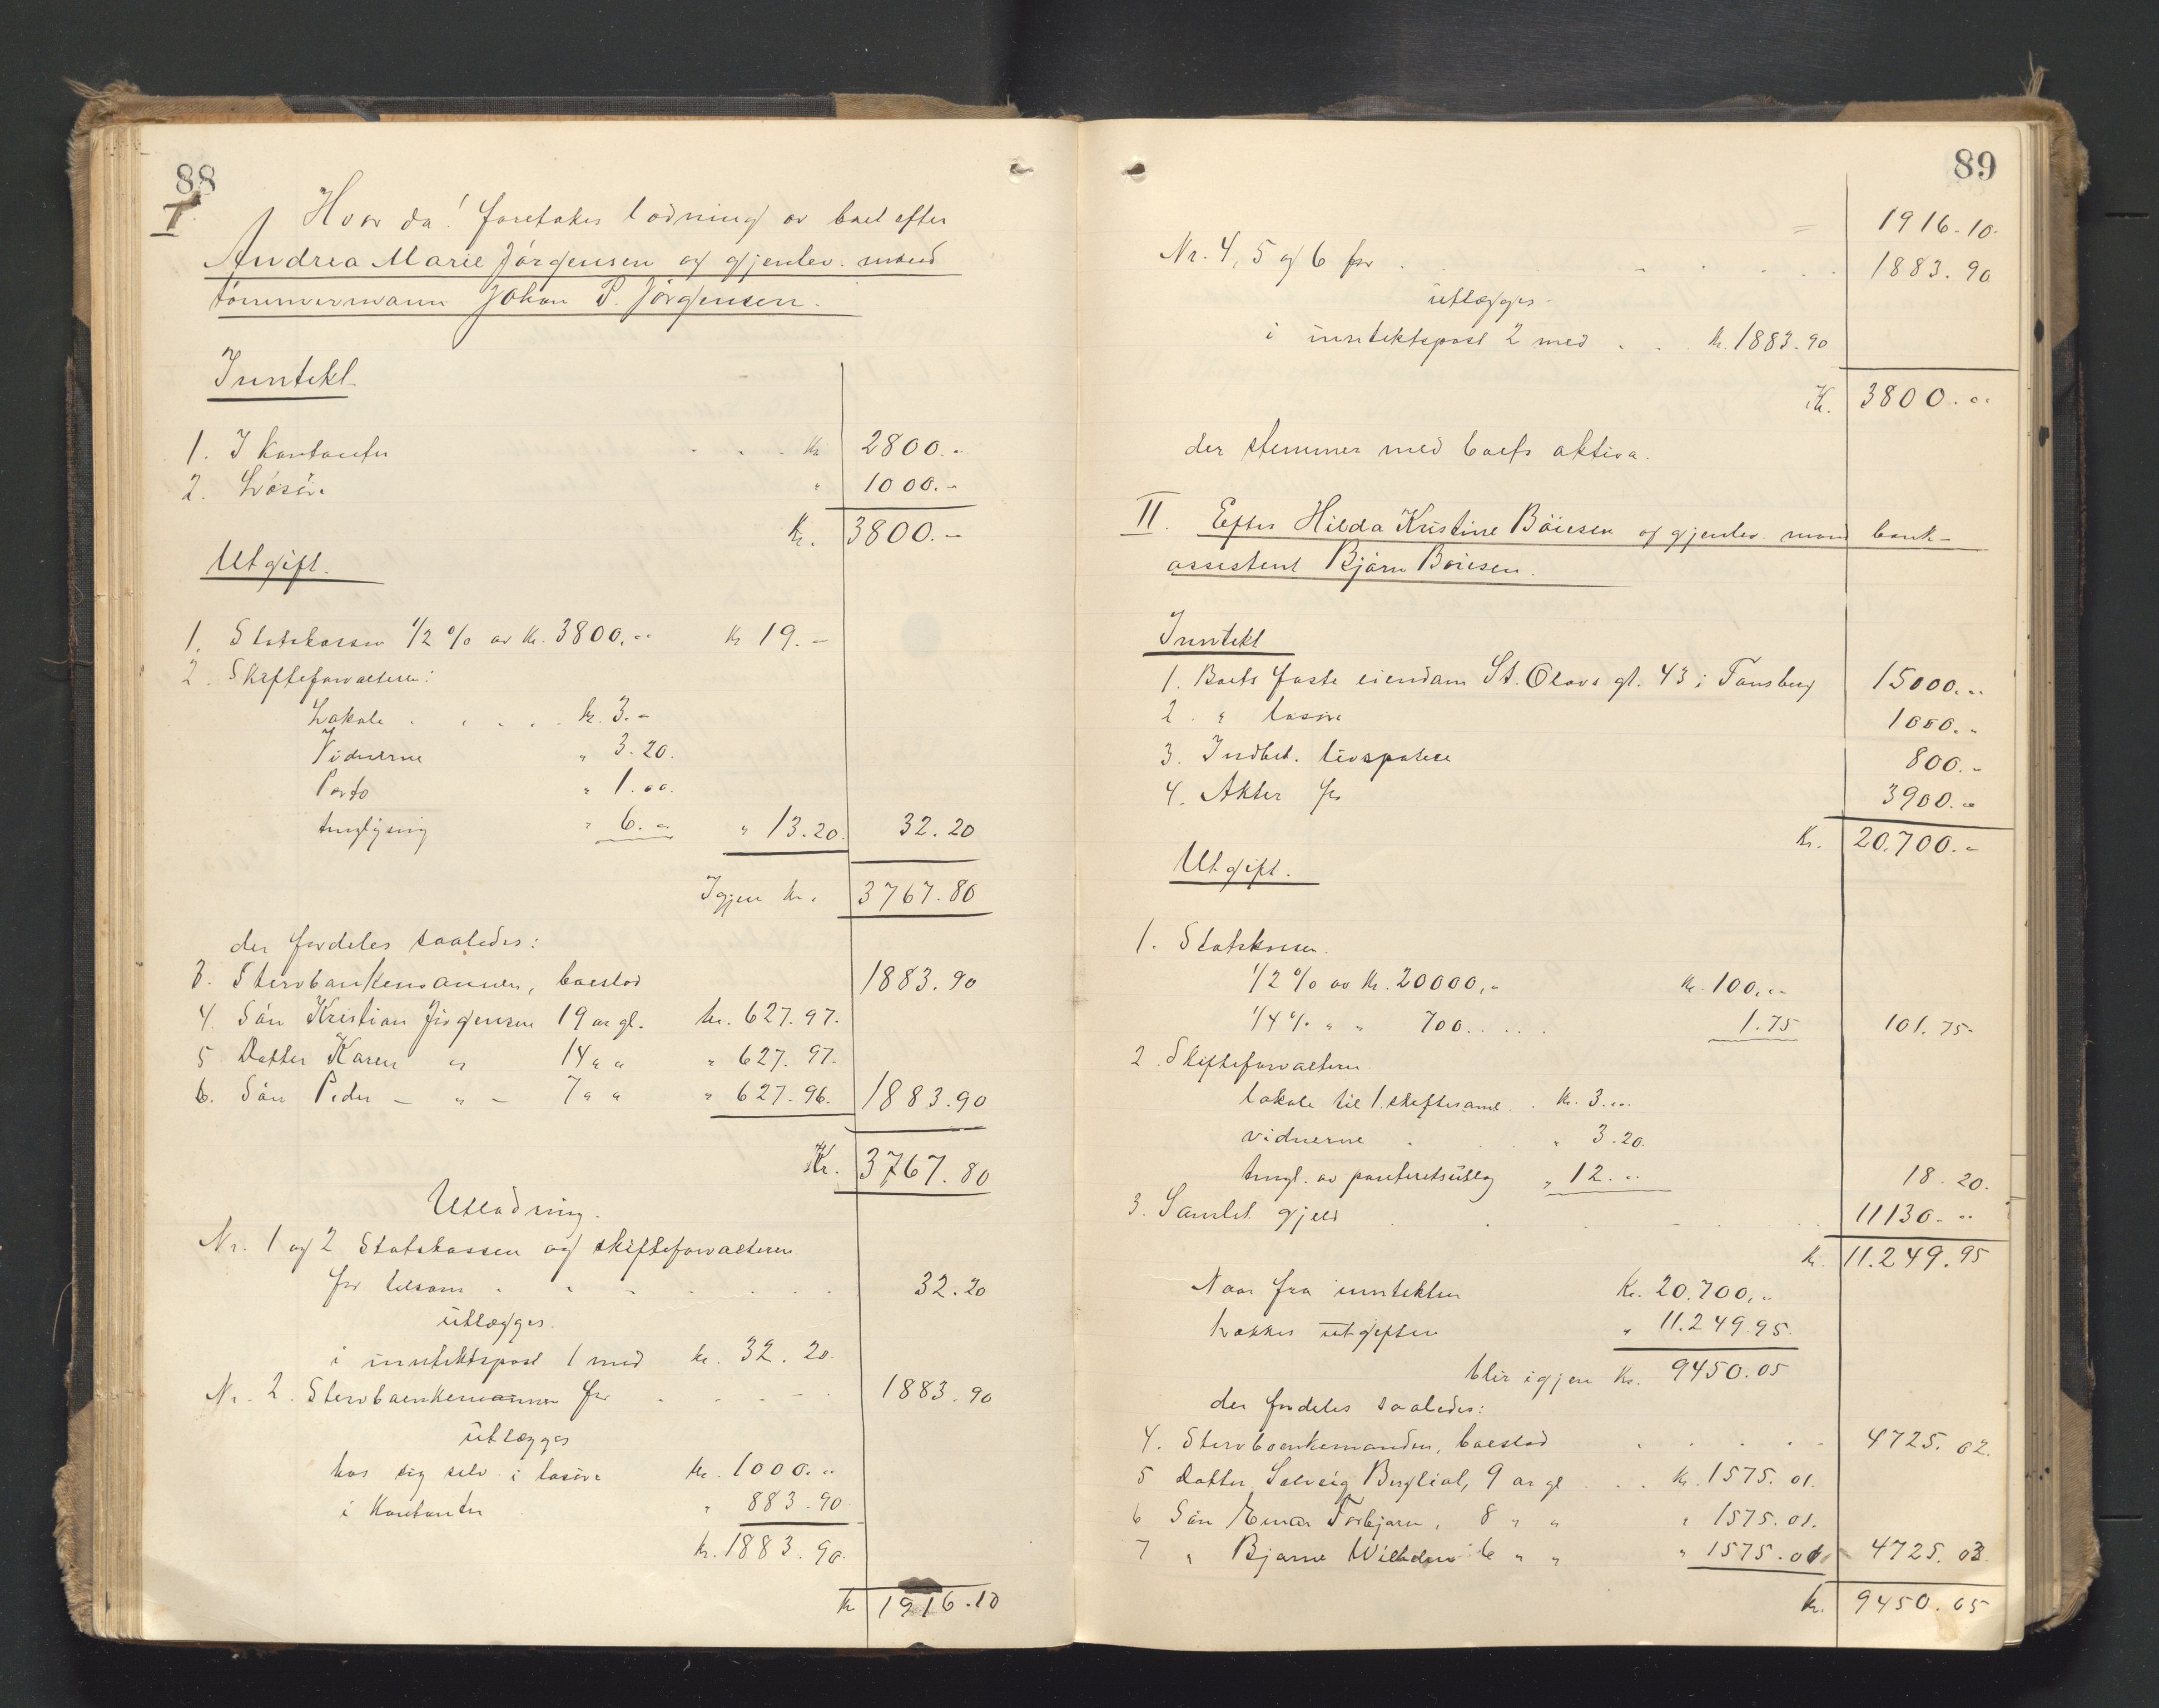 88
I. Hvor da! foretokes lodning av boet efter
Andrea Marie Jörgensen og gjenlev. mand
tömmermann Johan P. Jörgensen.
Inntekt
1. I Kontanter . . . kr 2800.-
2. Lösöre " 1000.-
Kr. 3800.-
Utgift.
1. Statskassen 1/2 % av kr. 3800.-- kr 19.-
2. Skifteforvalteren:
Lokale . . . . . kr. 3.-
Vidnerne " 3.20.
Porto " 1.00.
tinglysing " 6.-- " 13.20. 32.20
Igjen kr. 3767.80
der fordeles saaledes:
3. Stervboenkemannen, boeslod 1883.90
4. Sön Kristian Jörgensen 19 ar gl. kr. 627.97.
5 Datter Karen " 14 " " " 627.97.
6. Sön Peder - " - 7 " " " 627.96. 1883.90
Kr. 3767.80
Utlodning.
Nr. 1 og 2 Statskassen og skifteforvalteren
for tilsam . . . . . . . 32.20
utlægges.
i inntektspost 1 med kr. 32.20.
Nr. 2. Stervboenkemannen for . . . . 1883.90
utlægges
hos sig selv i lösöre kr. 1000.--
i Kontanter " 883.90
kr. 1883.90.
kr 1916.10
89
1916.10.
Nr. 4, 5 og 6 for . . . . . . . 1883.90
utlægges
i inntektspost 2 med . . kr. 1883.90
Kr. 3800.--
der stemmer med boets aktiva.
II. Efter Hilda Kristine Böiesen og gjenlev. mand bank-
assistent Bjarn Böiesen.
Inntekt
1. Boets faste eiendom St. Olavs gt. 43 i Tønsberg 15000.--
2. " lösöre 1000.-
3. Indbet. livspolise 800.-
4. Aktier for 3900.--
Kr. 20.700.-
Utgift.
1. Statskassen.
1/2 % av kr. 20000.- kr. 100.--
1/4 % " " 700 . . . . . 1.75 101.75.
2. Skifteforvalteren
lokale til 1. skiftesaml. . kr. 3.--
vidnerne . . . " 3.20.
tingl. av panteretsutlæg " 12.-- 18.20.
3. Samlet gjeld . . . . . 11130.--
kr. 11.249.95
Naar fra inntekten Kr. 20.700.--
trækkes utgiften " 11.249.95.
blir igjen Kr. 9450.05
der fordeles saaledes:
4. Stervboenkemanden, boeslod . . . . . 4725.02.
5 Datter Solveig Bergliot, 9 ar gl . . . kr. 1575.01.
6 Sön Einar Torbjørn, 8 " " " 1575.01.
7 " Bjarne Wilhelm 6 " " " 1575.01 4725.03.
kr. 9450.05